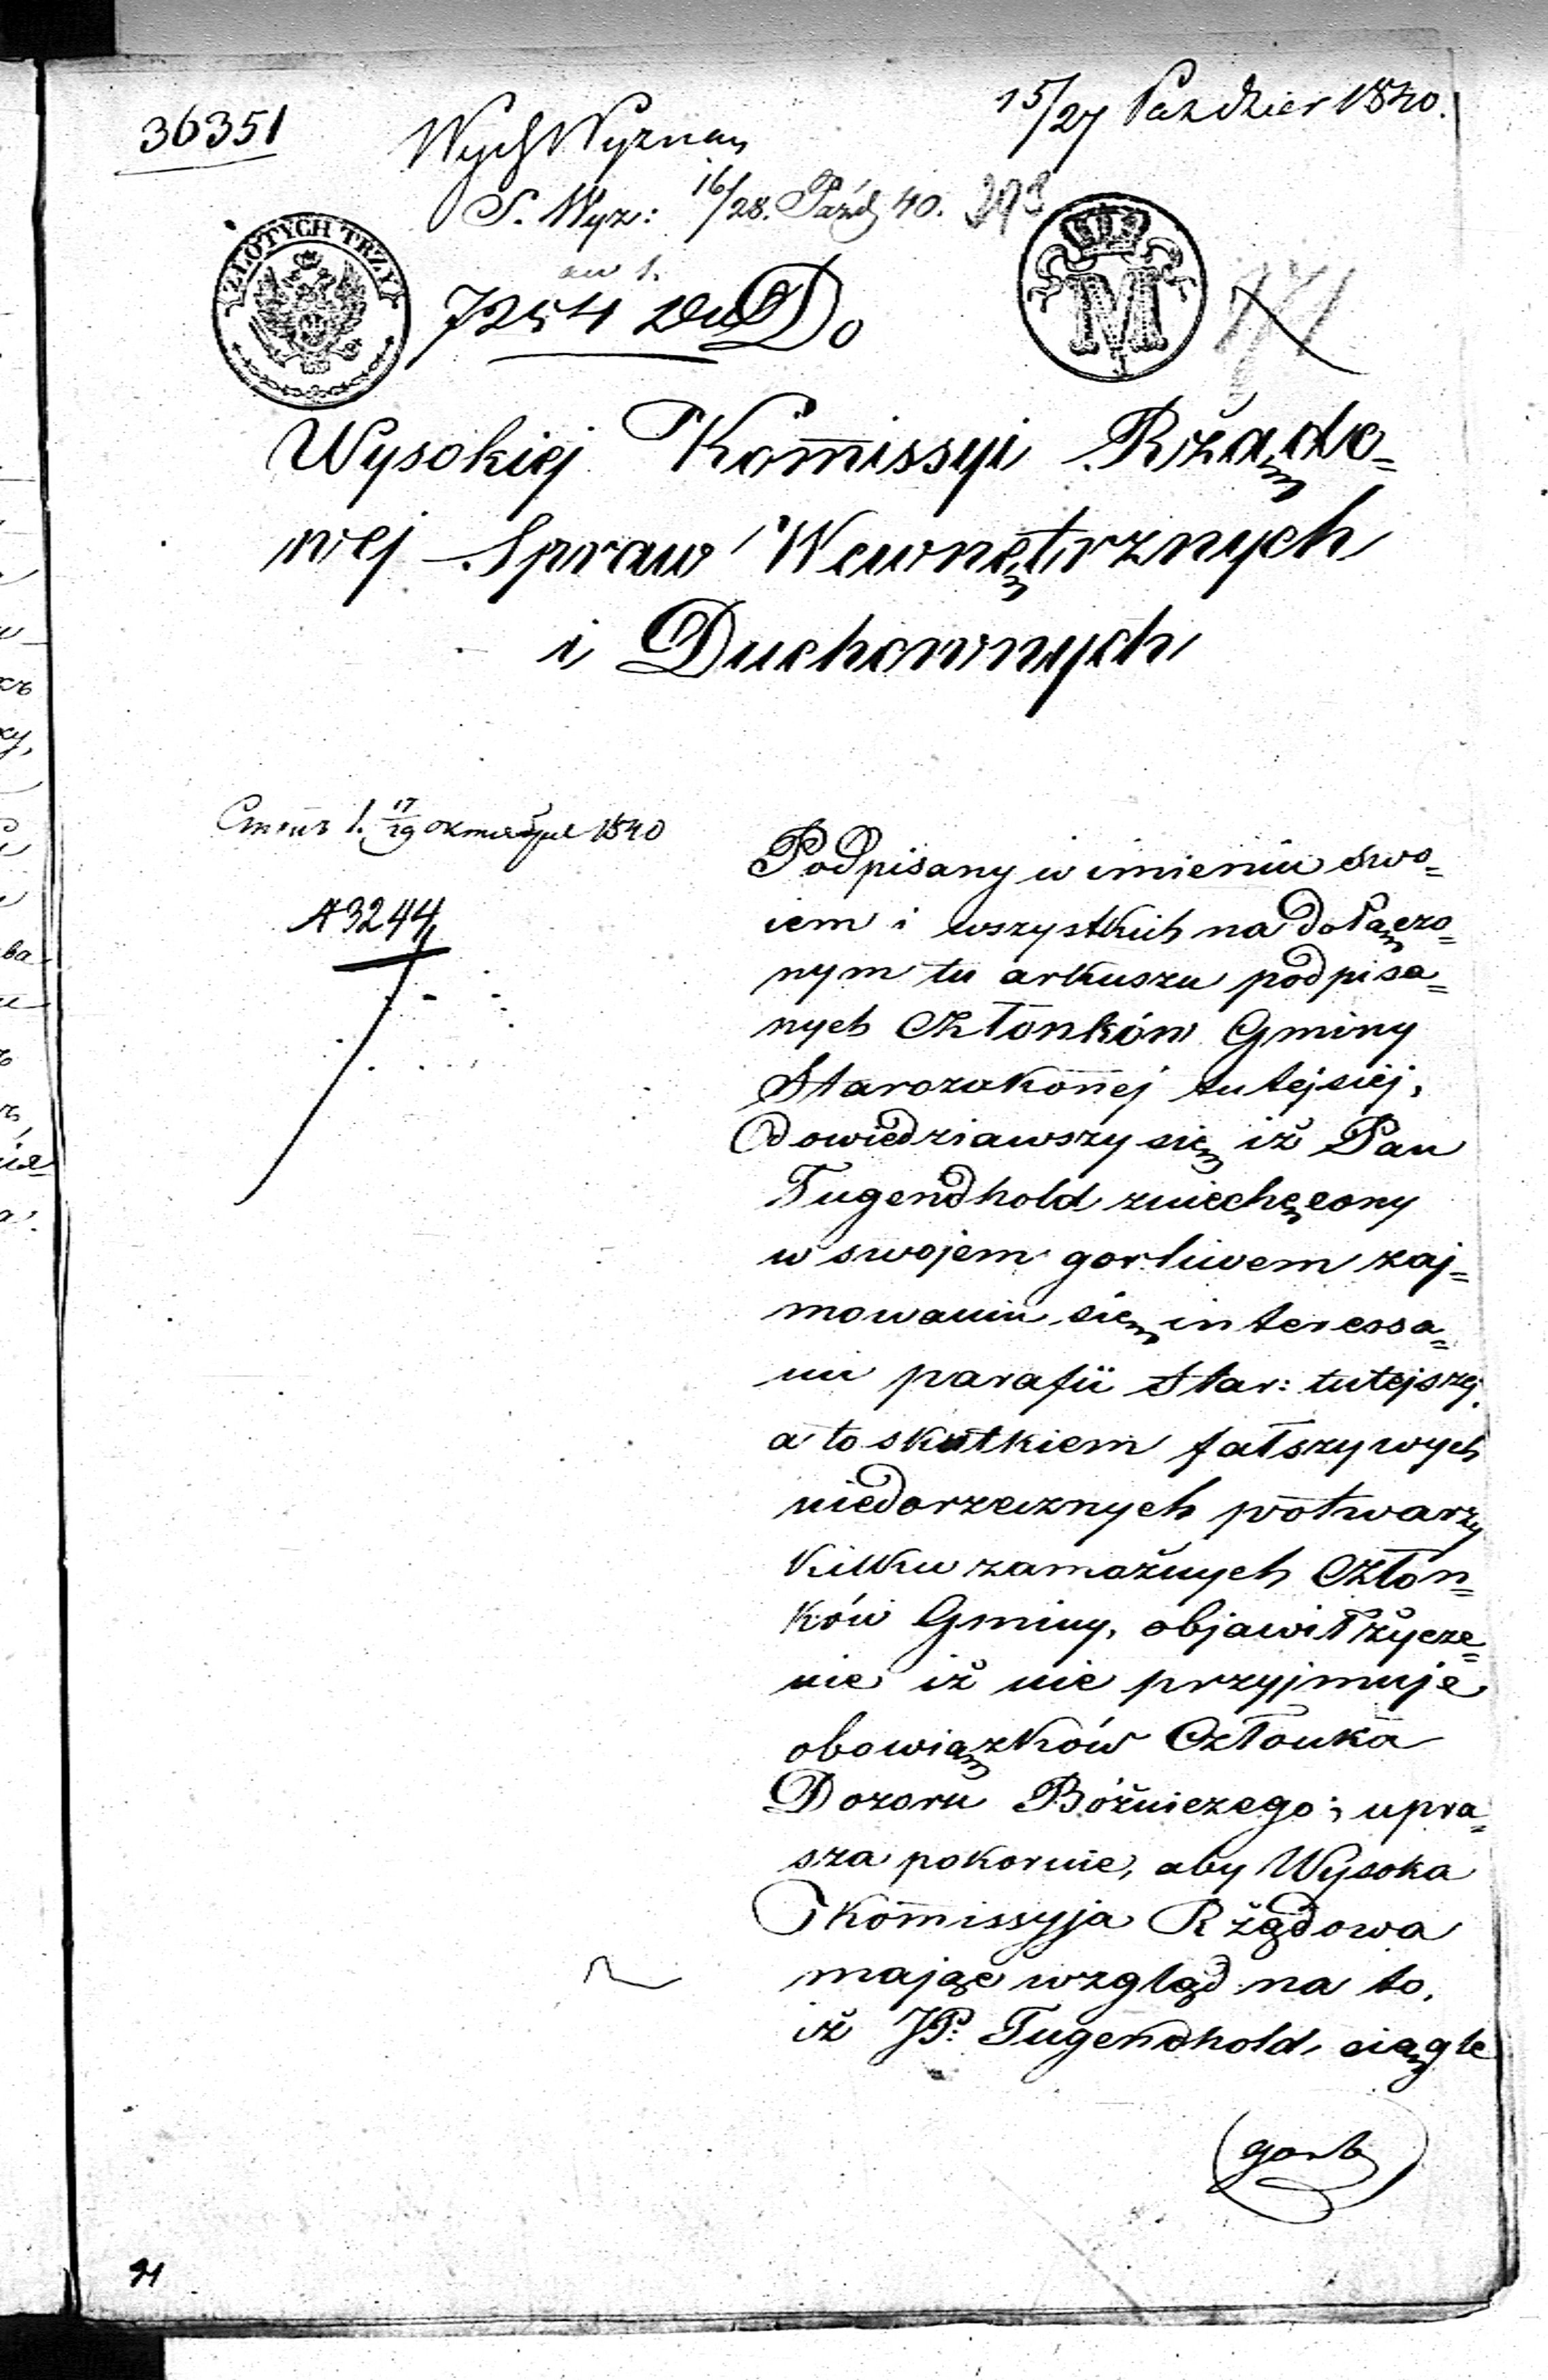 15/27 Paździer 1840.
36351
Wych Wyznań
S. Wyz: 16/28. Paźdz 40. 293
ZŁOTYCH TRZY
M
7254 Do
Wysokiej Kom̄issyi Rządo=
wej Spraw Wewnętrznych
i Duchownych
1. 17/29 октября 1840
A 3244
Podpisany w imieniu swo=
iem i wszystkich na dołączo=
nym tu arkuszu podpisa=
nych Członków Gminy
Starozakon̄ej tutejsiej,
dowiedziawszy się iż Pan
Tugendhold zniechęcony
w swojem gorliwem zaj=
mowaniu się interessa=
mi parafii Star: tutejszej.
a to skutkiem fałszywych
niedorzecznych potwarzy
kilku zamożnych Człon=
ków Gminy, objawił życze=
nie iż nie przyjmuje
obowiązków Członka
Dozoru Bóżniczego; upra=
sza pokornie, aby Wysoka
Kom̄issyja Rządowa
mając wzgląd na to,
iż JP: Tugendhold, ciągle
gorl
21